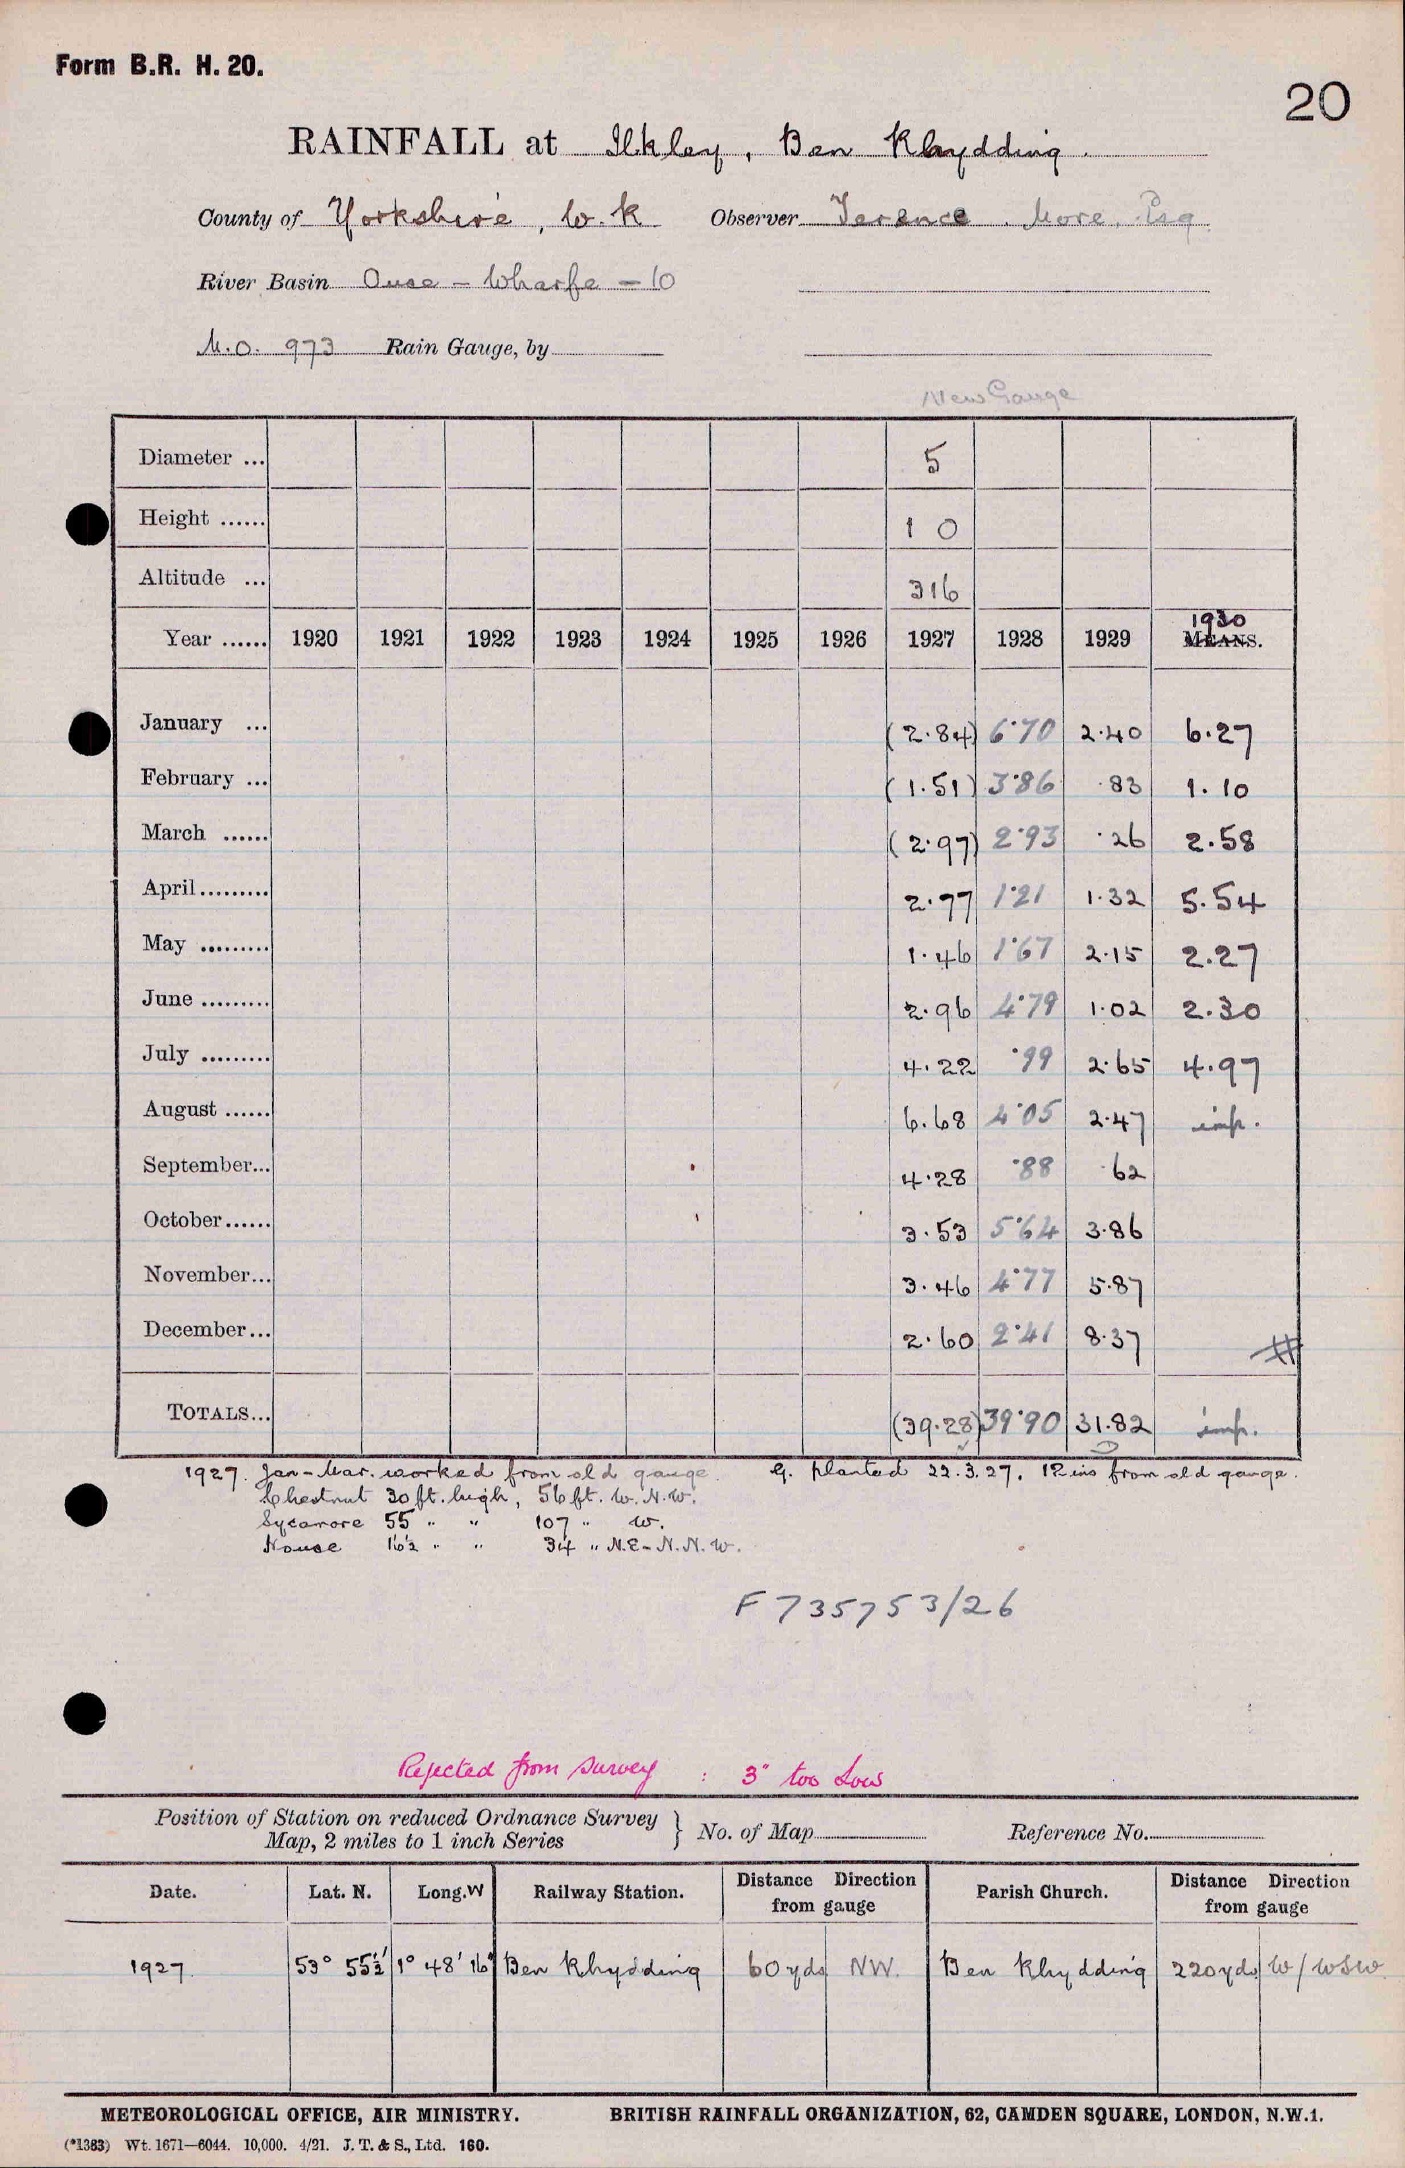 Form B.R. H. 20.
20
RAINFALL at Ilkley, Ben Rhydding.
County of Yorkshire, W.R Observer Terence More, Esq
River Basin Ouse – Wharfe – 10
M.O. 973 Rain Gauge, by
New Gauge
Diameter ... 5
Height ...... 1 0
Altitude ... 316
1930
Year ...... 1920 1921 1922 1923 1924 1925 1926 1927 1928 1929 MEANS.
January ... (2.84) 6.70 2.40 6.27
February ... (1.51) 3.86 .83 1.10
March ...... (2.97) 2.93 .26 2.58
April......... 2.77 1.21 1.32 5.54
May ......... 1.46 1.67 2.15 2.27
June ......... 2.96 4.79 1.02 2.30
July ......... 4.22 .99 2.65 4.97
August ...... 6.68 4.05 2.47 imp.
September... 4.28 .88 .62
October...... 3.53 5.64 3.86
November... 3.46 4.77 5.87
December... 2.60 2.41 8.37
TOTALS... (39.28) 39.90 31.82 imp.
1927. Jan – Mar. worked from old gauge. G. planted 22.3.27, 12 ins from old gauge.
Chestnut 30 ft. high, 56 ft. W.N.W.
Sycamore 55 " " 107 " W.
House 16½ " " 34 " N.E – N.N.W.
F 735753/26
Rejected from Survey : 3" too Low
Position of Station on reduced Ordnance Survey
Map, 2 miles to 1 inch Series } No. of Map Reference No.
Date. Lat. N. Long. W Railway Station. Distance Direction from gauge Parish Church. Distance Direction from gauge
1927 53° 55½' 1° 48' 16" Ben Rhydding 60 yds NW. Ben Rhydding 220 yds W/WSW
METEOROLOGICAL OFFICE, AIR MINISTRY. BRITISH RAINFALL ORGANIZATION, 62, CAMDEN SQUARE, LONDON, N.W.1.
(*1383) Wt. 1671—6044. 10,000. 4/21. J. T. & S., Ltd. 160.